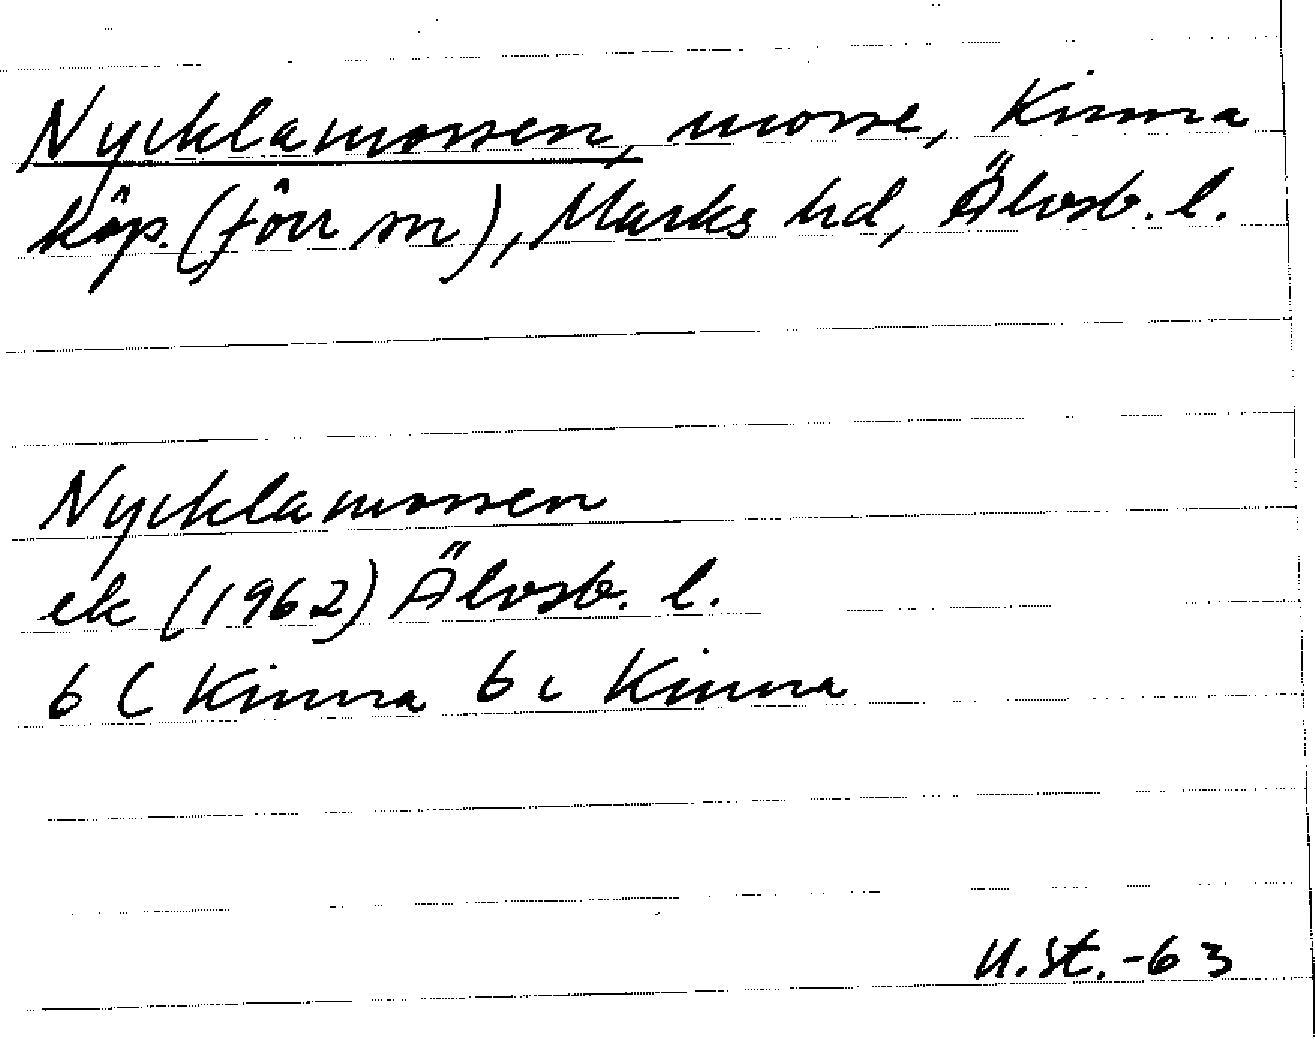 Nycklamossen, mosse, Kinna
köp. (förr sn), Marks hd, Älvsb. l.
Nycklamossen
ek (1962) Älvsb. l.
6 C Kinna 6 c Kinna
U.St.-63